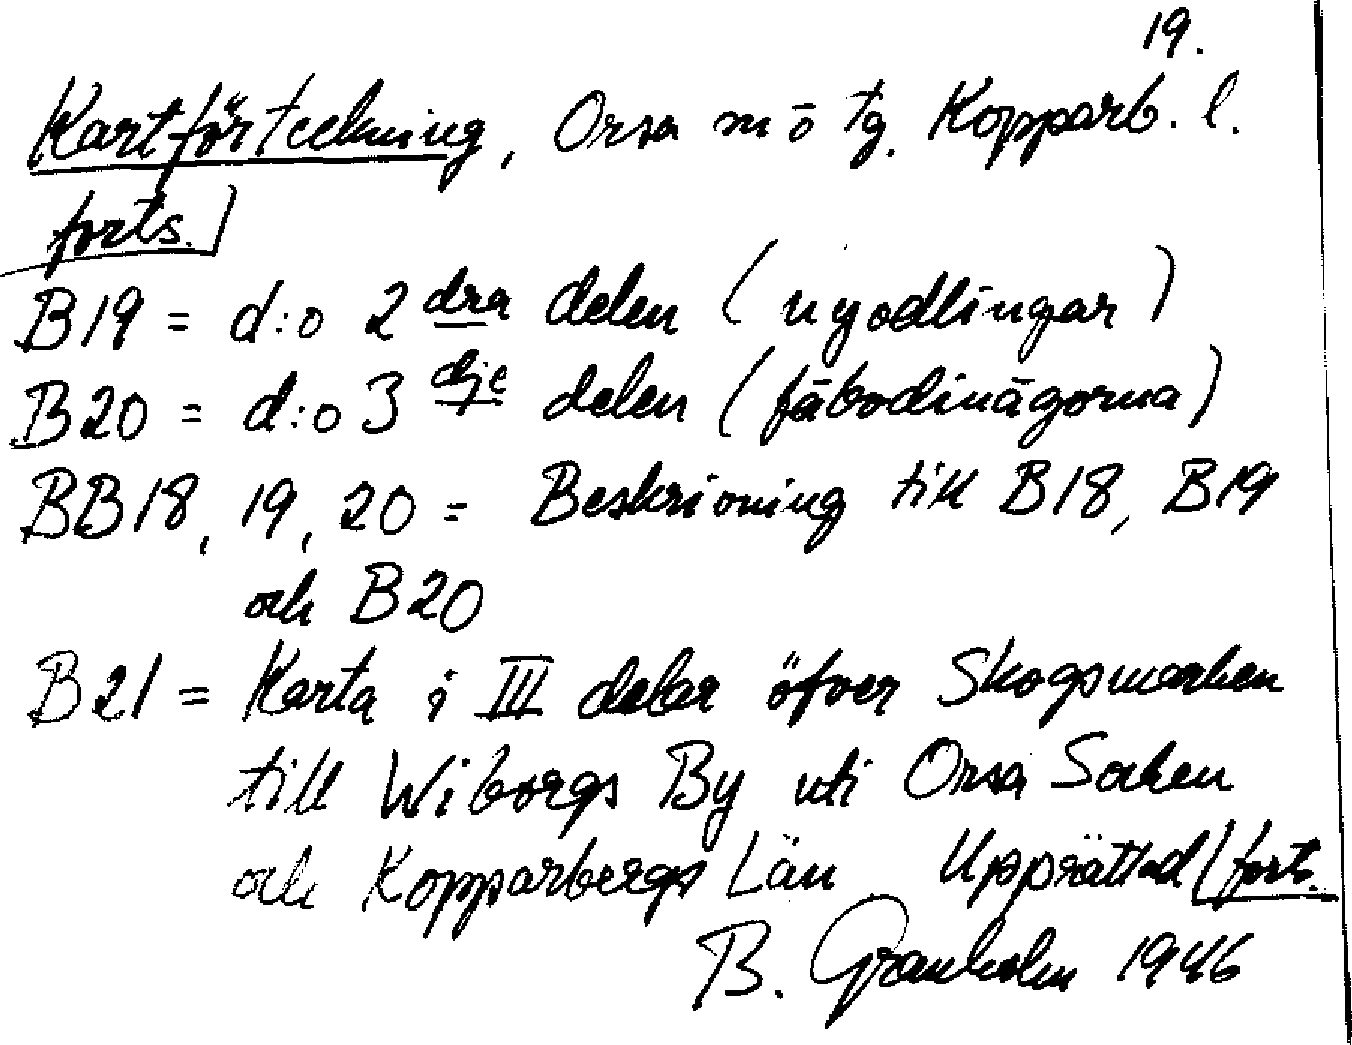 19.
Kartförteckning, Orsa m ö tg. Kopparb. l.
forts.
B19 = d:o 2 dra delen (nyodlingar)
B20 = d:o 3 dje delen (fäbodinägorna)
BB18, 19, 20 = Beskrivning till B18, B19
och B20
B21 = Karta i III delar öfver Skogsmarken
till Wiborgs By uti Orsa Socken
och Kopparbergs Län Upprättad /forts.
B. Granholm 1946